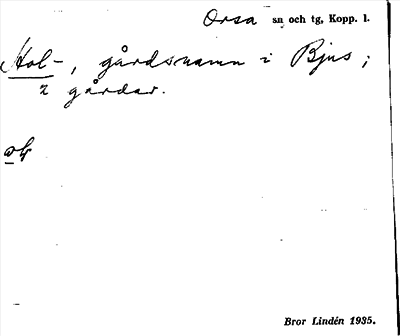 Orsa sn och tg, Kopp. l.
Hol-, gårdsnamn i Bjus;
2 gårdar.
Bror Lindén 1935.